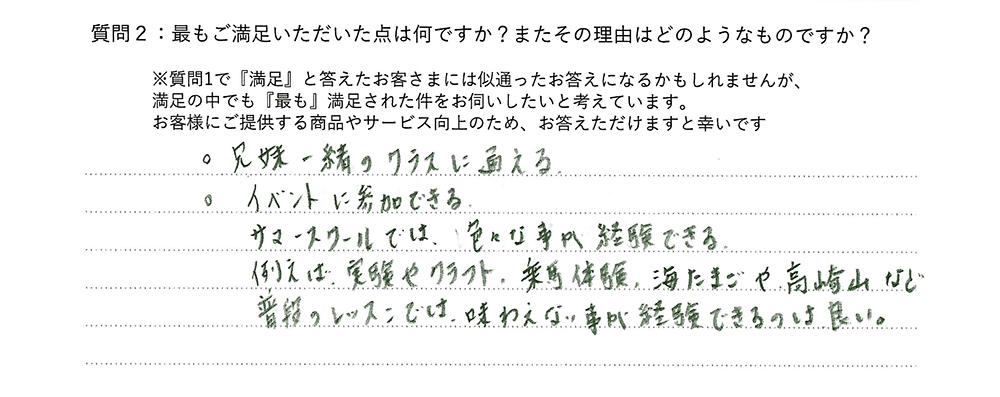 質問２：最もご満足いただいた点は何ですか？またその理由はどのようなものですか？
※質問1で『満足』と答えたお客さまには似通ったお答えになるかもしれませんが、
満足の中でも『最も』満足された件をお伺いしたいと考えています。
お客様にご提供する商品やサービス向上のため、お答えただけますと幸いです
○ 兄妹一緒のクラスに通える.
○ イベントに参加できる.
サマースクールでは、色々な事が経験できる.
例えば、実験やクラフト、乗馬体験、海たまごや、高崎山など
普段のレッスンでは、味わえない事が経験できるのは良い。